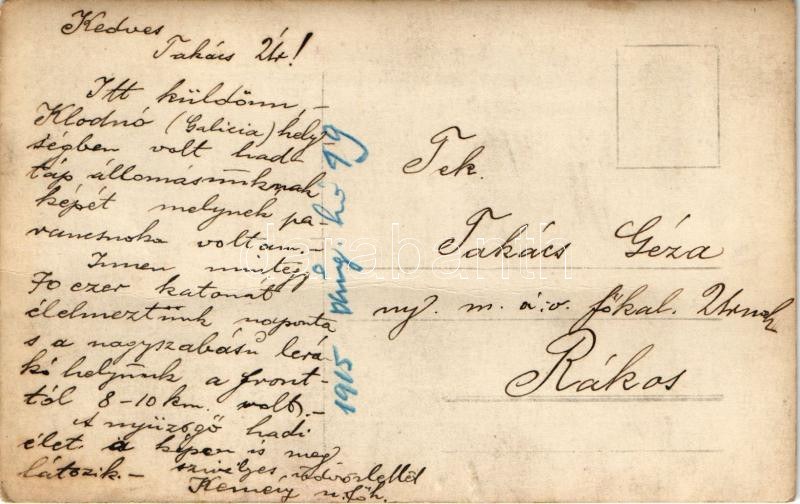 Kedves
Takács Úr!
Itt küldöm, –
Klodnó (Galicia) hely
ségben volt had-
táp állomásunknak
képét melynek pa-
rancsnoka voltam. –
Innen mintegy
70 ezer katonát
élelmeztünk naponta
s a nagyszabású lera-
kó helyünk a front-
tól 8–10 km. volt. –
A nyüzsgő hadi
élet a képen is meg
látszik. –
szivélyes üdvözlettel
Kemény
1915 Aug. hó 9
Tek.
Takács Géza
ny. m. á. v. főkal. Úrnak
Rákos
darabanth